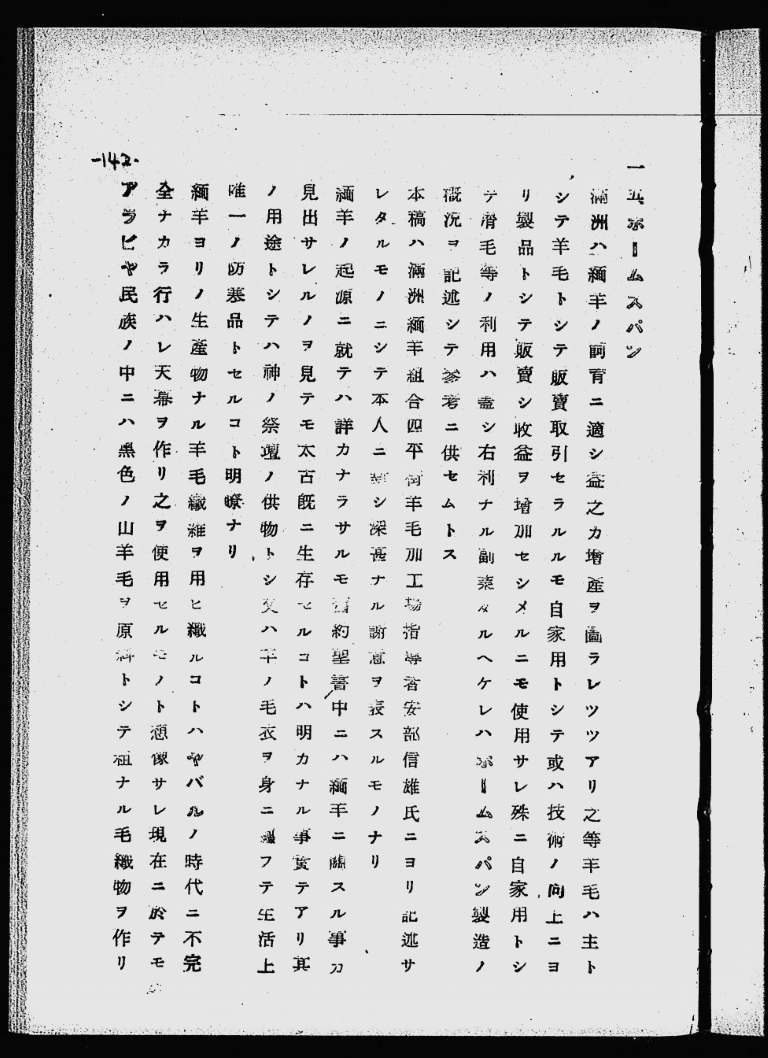 -142-
一五ホームスパン
滿洲ハ緬羊ノ飼育ニ適シ益之カ增產ヲ圖ラレツツアリ之等羊毛ハ主ト
シテ羊毛トシテ販賣取引セラルルモ自家用トシテ或ハ技術ノ向上ニヨ
リ製品トシテ販賣シ收益ヲ增加セシメルニモ使用サレ殊ニ自家用トシ
テ滑毛等ノ利用ハ盡シ右利ナル副業タルヘケレハホームスパン製造ノ
槪況ヲ記述シテ參考ニ供セムトス
本稿ハ滿洲緬羊組合四平街羊毛加工場指導者安部信雄氏ニヨリ記述サ
レタルモノニシテ本人ニ シ深甚ナル謝意ヲ表スルモノナリ
緬羊ノ起源ニ就テハ詳カナラサルモ舊約聖書中ニハ緬羊ニ關スル事カ
見出サレルノヲ見テモ太古既ニ生存セルコトハ明カナル事實テアリ其
ノ用途トシテハ神ノ祭壇ノ供物トシ又ハ羊ノ毛衣ヲ身ニ フテ生活上
唯一ノ防寒品トセルコト明瞭ナリ
緬羊ヨリノ生產物ナル羊毛纖維ヲ用ヒ織ルコトハヤバルノ時代ニ不完
全ナカラ行ハレ天幕ヲ作リ之ヲ使用セルモノト想像サレ現在ニ於テモ
アラビヤ民族ノ中ニハ黑色ノ山羊毛ヲ原料トシテ粗ナル毛織物ヲ作リ